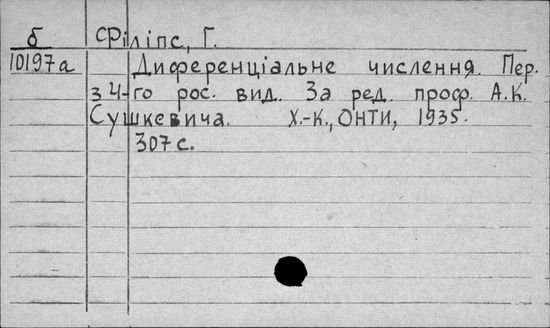 б Філіпс, Г.
10197а Диференціальне числення. Пер.
з 4-го рос. вид. За ред. проф. А.К.
Сушкевича. Х.-К., ОНТИ, 1935.
307 с.